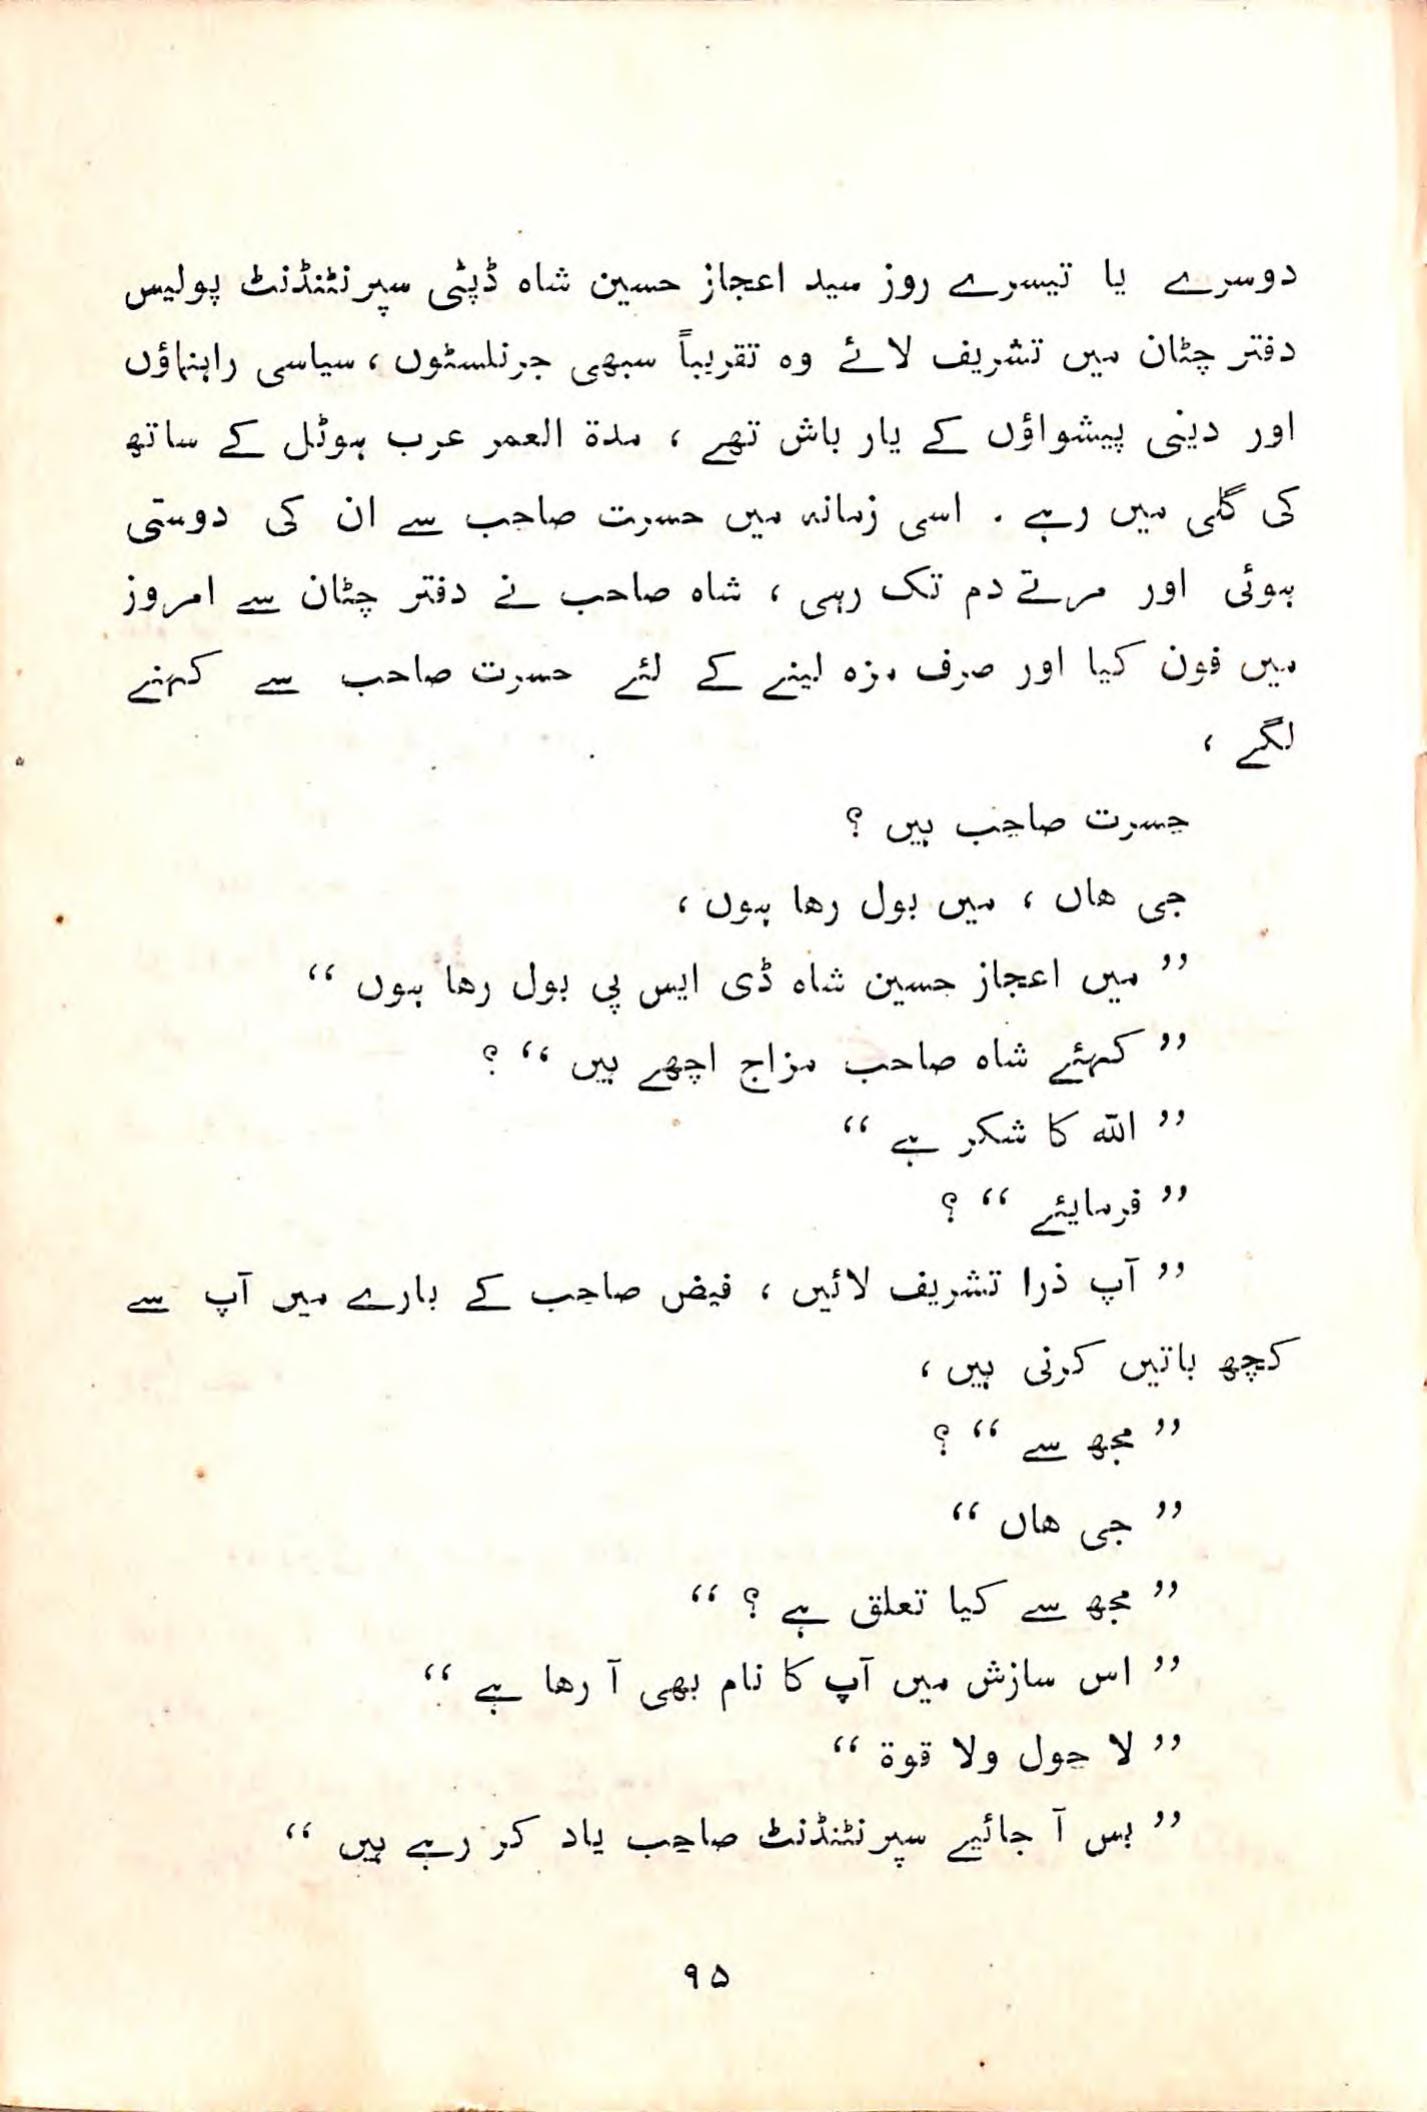 دوسرے یا تیسرے روز سید اعجاز حسین شاہ ڈپٹی سپرنٹنڈنٹ پولیس
دفتر چٹان میں تشریف لائے وہ تقریباً سبھی جرنلسٹوں ، سیاسی راہنماؤں
اور دینی پیشواؤں کے یار باش تھے ، مدۃ العمر عرب ہوٹل کے ساتھ
کی گلی میں رہے . اسی زمانہ میں حسرت صاحب سے ان کی دوستی
ہوئی اور مرتے دم تک رہی ، شاہ صاحب نے دفتر چٹان سے امروز
میں فون کیا اور صرف مزہ لینے کے لئے حسرت صاحب سے کہنے
لگے ،
حسرت صاحب ہیں ؟
جی ھاں ، میں بول رھا ہوں ،
” میں اعجاز حسین شاہ ڈی ایس پی بول رھا ہوں “
” کہئے شاہ صاحب مزاج اچھے ہیں “ ؟
” اللہ کا شکر ہے “
” فرمایئے “ ؟
” آپ ذرا تشریف لائیں ، فیض صاحب کے بارے میں آپ سے
کچھ باتیں کرنی ہیں ،
” مجھ سے “ ؟
” جی ھاں “
” مجھ سے کیا تعلق ہے ؟ “
” اس سازش میں آپ کا نام بھی آ رھا ہے “
” لا حول ولا قوۃ “
” بس آ جائیے سپرنٹنڈنٹ صاحب یاد کر رہے ہیں “
۹۵